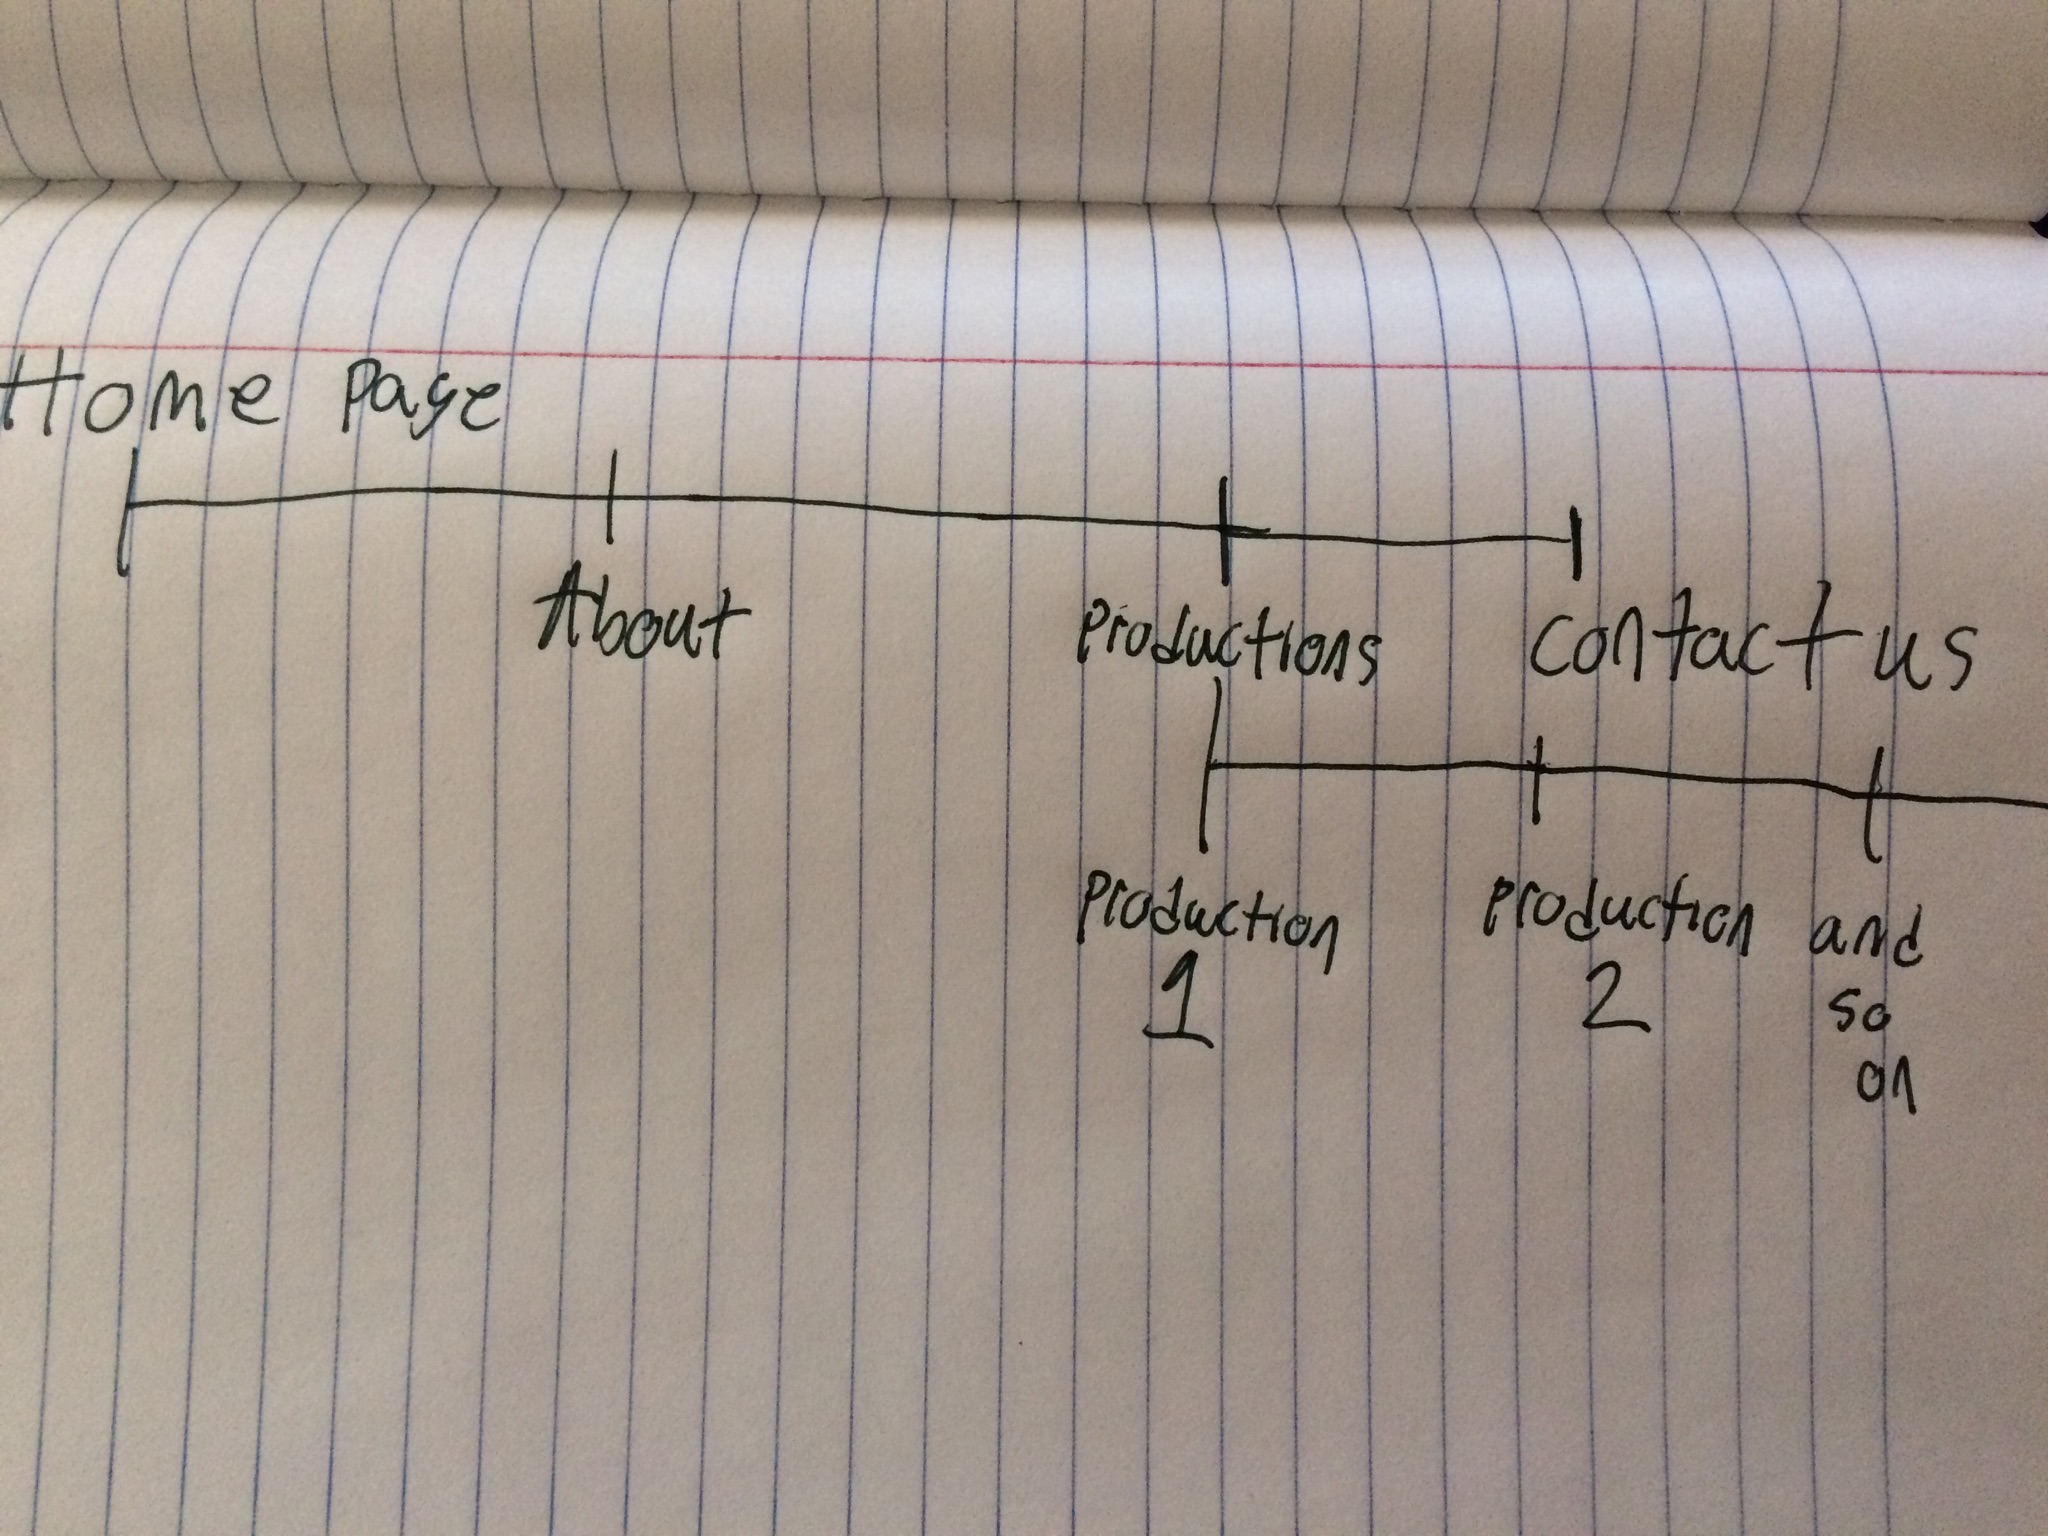 Home Page
About
Productions
contact us
Production
1
Production
2
and
so
on